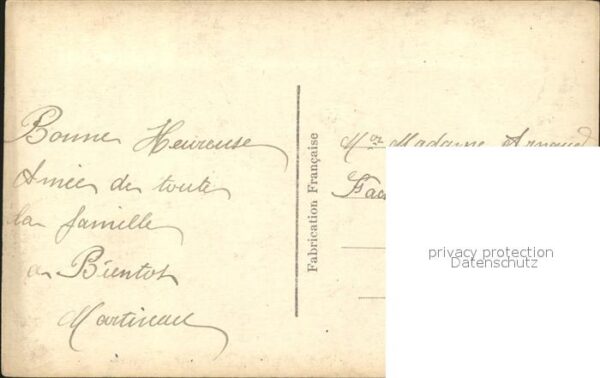 Bonne Heureuse
Année de toute
la famille
a Bientot
Martineau
Fabrication Française
Mr Madame Arnaud
privacy protection
Datenschutz